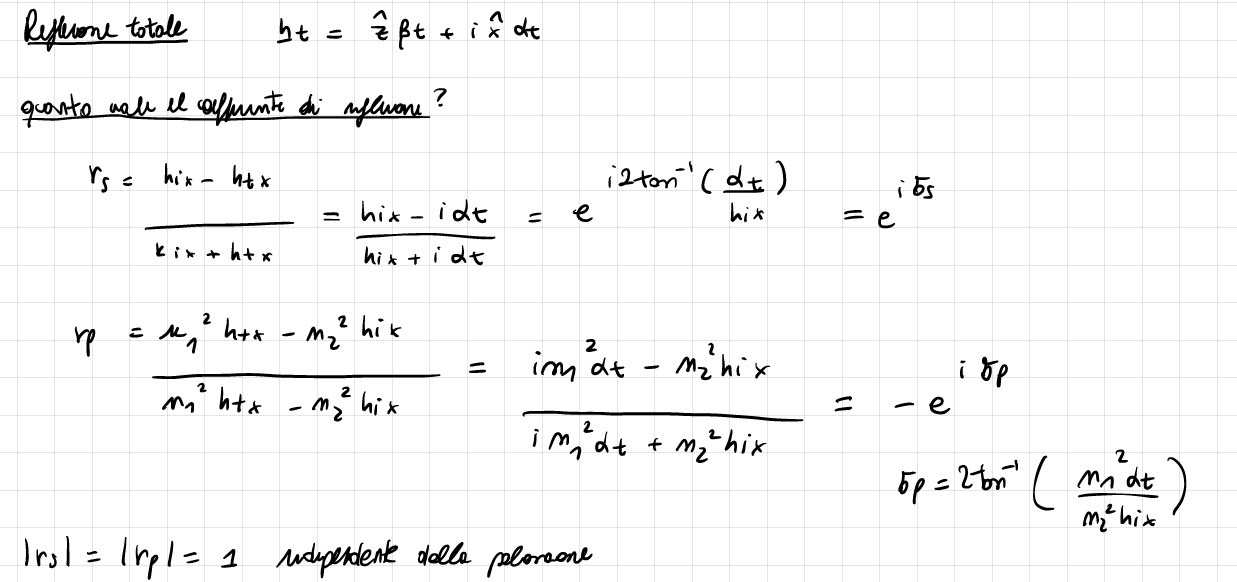 Riflessione totale k_t = ẑ β_t + i x̂ α_t
quanto vale il coefficiente di riflessione?
r_s = (k_ix - k_tx) / (k_ix + k_tx) = (k_ix - i α_t) / (k_ix + i α_t) = e^(i 2 tan^-1 (α_t / k_ix)) = e^(i δ_s)
r_p = (n_1^2 k_tx - n_2^2 k_ix) / (n_1^2 k_tx - n_2^2 k_ix) = (i n_1^2 α_t - n_2^2 k_ix) / (i n_1^2 α_t + n_2^2 k_ix) = - e^(i δ_p)
δ_p = 2 tan^-1 (n_1^2 α_t / n_2^2 k_ix)
|r_s| = |r_p| = 1 indipendente dalla